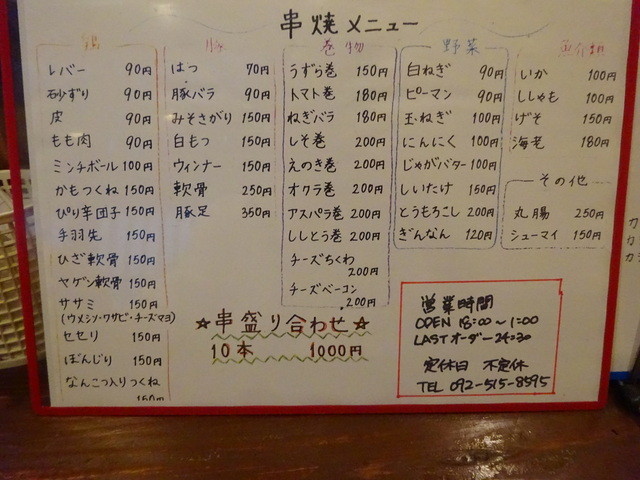 串焼メニュー
鶏
レバー 90円
砂ずり 90円
皮 90円
もも肉 90円
ミンチボール 100円
かもつくね 150円
ぴり辛団子 150円
手羽先 150円
ひざ軟骨 150円
ヤゲン軟骨 150円
ササミ 150円
(ウメシソ・ワサビ・チーズマヨ)
セセリ 150円
ぼんじり 150円
なんこつ入りつくね
150円
豚
はつ 70円
豚バラ 90円
みそさがり 150円
白もつ 150円
ウィンナー 150円
軟骨 250円
豚足 350円
巻物
うずら巻 150円
トマト巻 180円
ねぎバラ 180円
しそ巻 200円
えのき巻 200円
オクラ巻 200円
アスパラ巻 200円
ししとう巻 200円
チーズちくわ
200円
チーズベーコン
200円
野菜
白ねぎ 90円
ピーマン 90円
玉ねぎ 100円
にんにく 100円
じゃがバター 100円
しいたけ 150円
とうもろこし 200円
ぎんなん 120円
魚介類
いか 100円
ししゃも 100円
げそ 150円
海老 180円
その他
丸腸 250円
シューマイ 150円
☆串盛り合わせ☆
10本 1000円
営業時間
OPEN 18:00〜1:00
LASTオーダー 24:30
定休日 不定休
TEL 092-515-8595